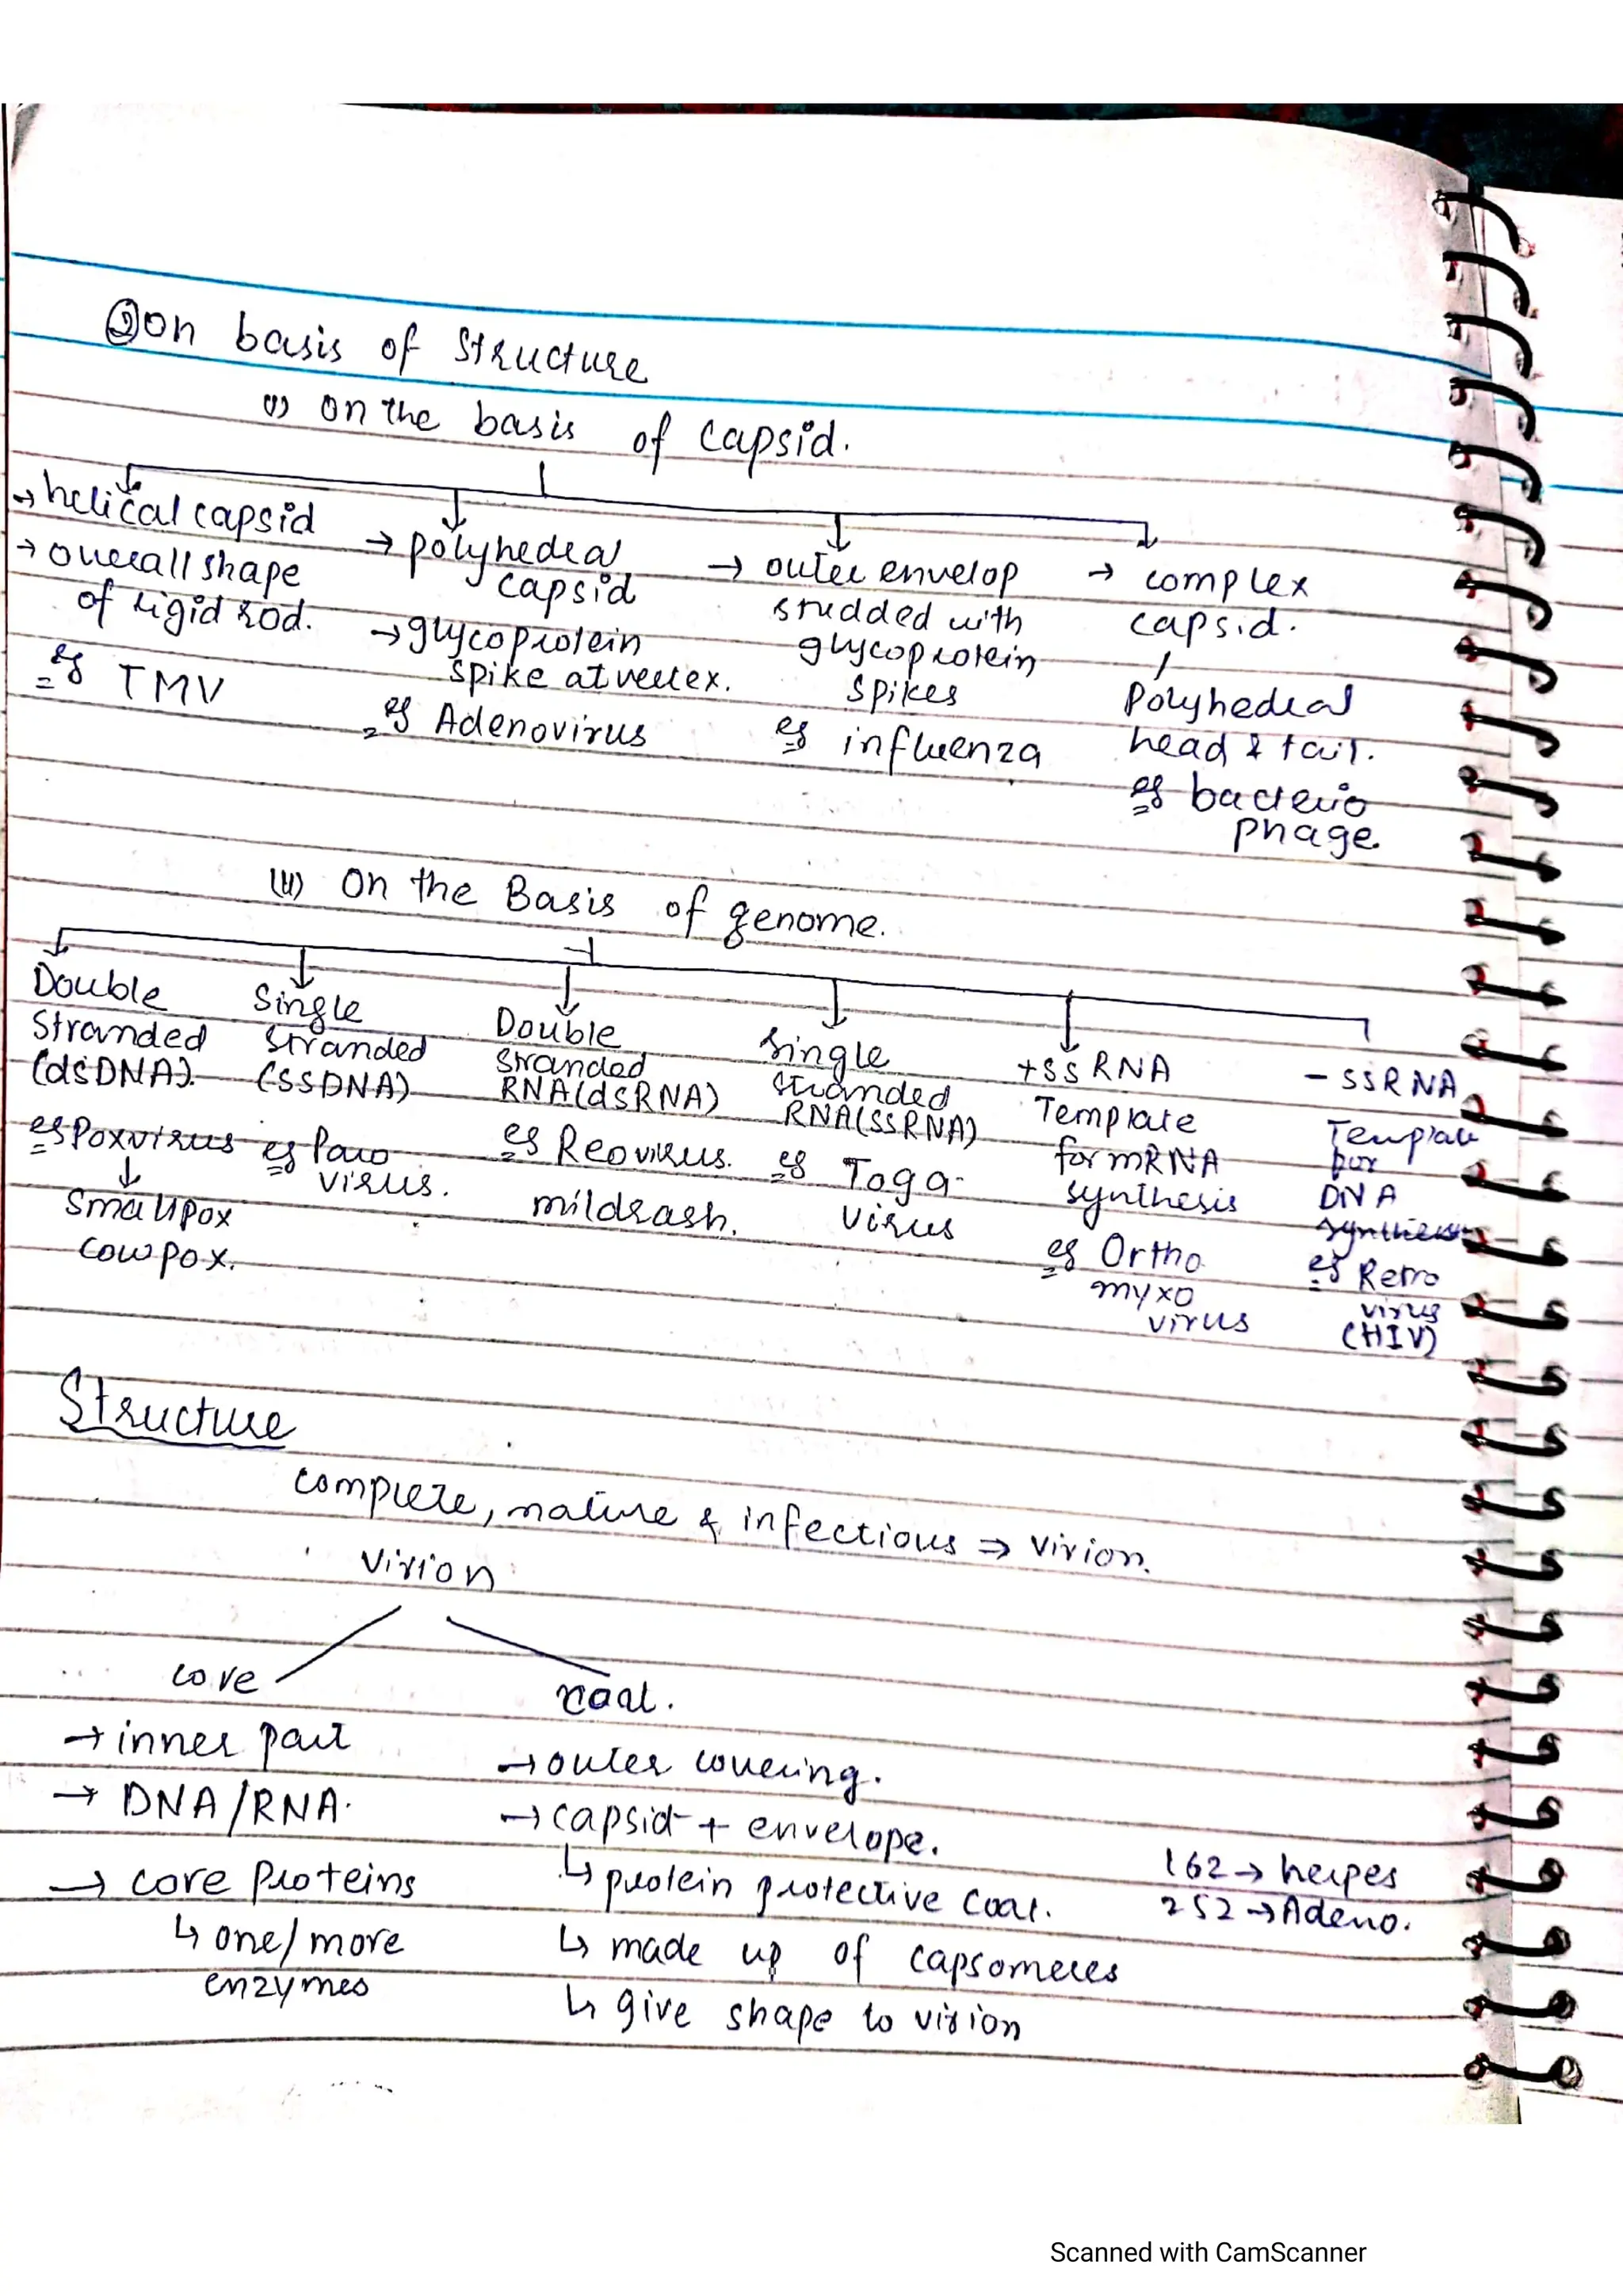 ② on basis of structure
(i) on the basis of capsid.
→ helical capsid
→ overall shape
of rigid rod.
eg TMV
→ polyhedral
capsid
→ glycoprotein
spike at vertex.
eg Adenovirus
→ outer envelop
studded with
glycoprotein
spikes
eg influenza
→ complex
capsid.
Polyhedral
head & tail.
eg bacterio
phage
(ii) On the Basis of genome.
Double
Stranded
(dsDNA).
eg Poxvirus
↓
Smallpox
cowpox.
Single
Stranded
(ssDNA)
eg Parvo
virus.
Double
stranded
RNA(dsRNA)
eg Reovirus.
mildrash.
Single
stranded
RNA(ssRNA)
eg Toga-
virus
+ssRNA
Template
for mRNA
synthesis
eg Ortho
myxo
virus
- ssRNA
Template
for
DNA
synthesis
eg Retro
virus
(HIV)
Structure
complete, mature & infectious ⇒ virion.
virion
core
→ inner part
→ DNA/RNA.
→ core Proteins
↳ one/more
enzymes
coat.
→ outer covering.
→ capsid + envelope.
↳ protein protective coat.
↳ made up of capsomeres
↳ give shape to virion
162 → herpes
252 → Adeno.
Scanned with CamScanner